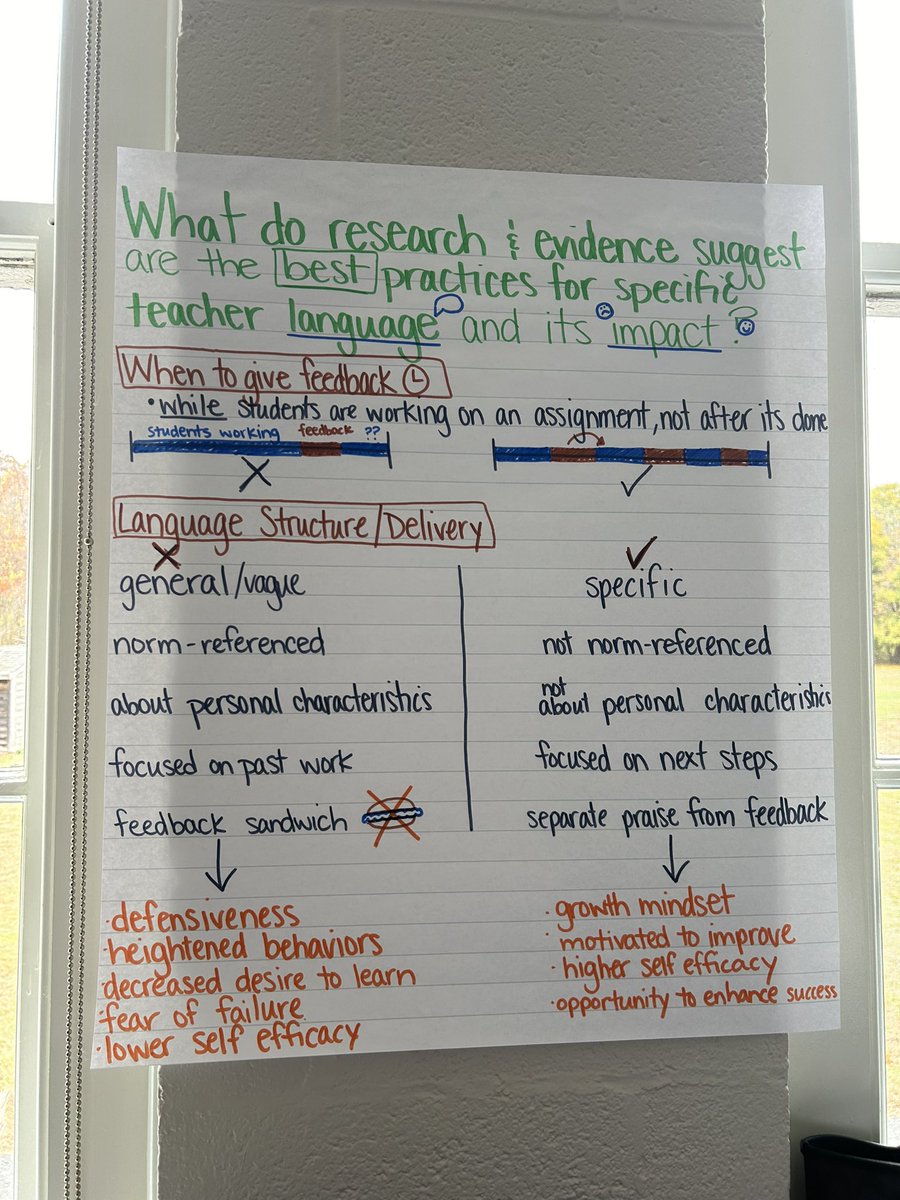 What do research & evidence suggest
are the best practices for specific
teacher language and its impact ?
When to give feedback
• while students are working on an assignment, not after its done
students working feedback ??
Language Structure/Delivery
general/vague
norm-referenced
about personal characteristics
focused on past work
feedback sandwich
specific
not norm-referenced
not
about personal characteristics
focused on next steps
separate praise from feedback
• defensiveness
• heightened behaviors
• decreased desire to learn
• fear of failure
• lower self efficacy
• growth mindset
• motivated to improve
• higher self efficacy
• opportunity to enhance success